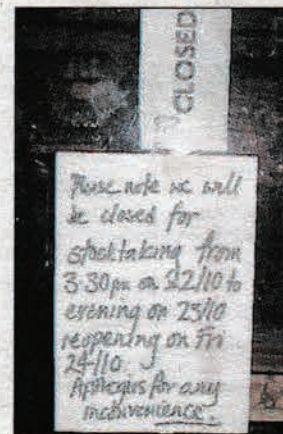 CLOSED
Please note we will
be closed for
stocktaking from
3.30pm on 22/10 to
evening on 23/10
reopening on Fri
24/10.
Apologies for any
inconvenience.